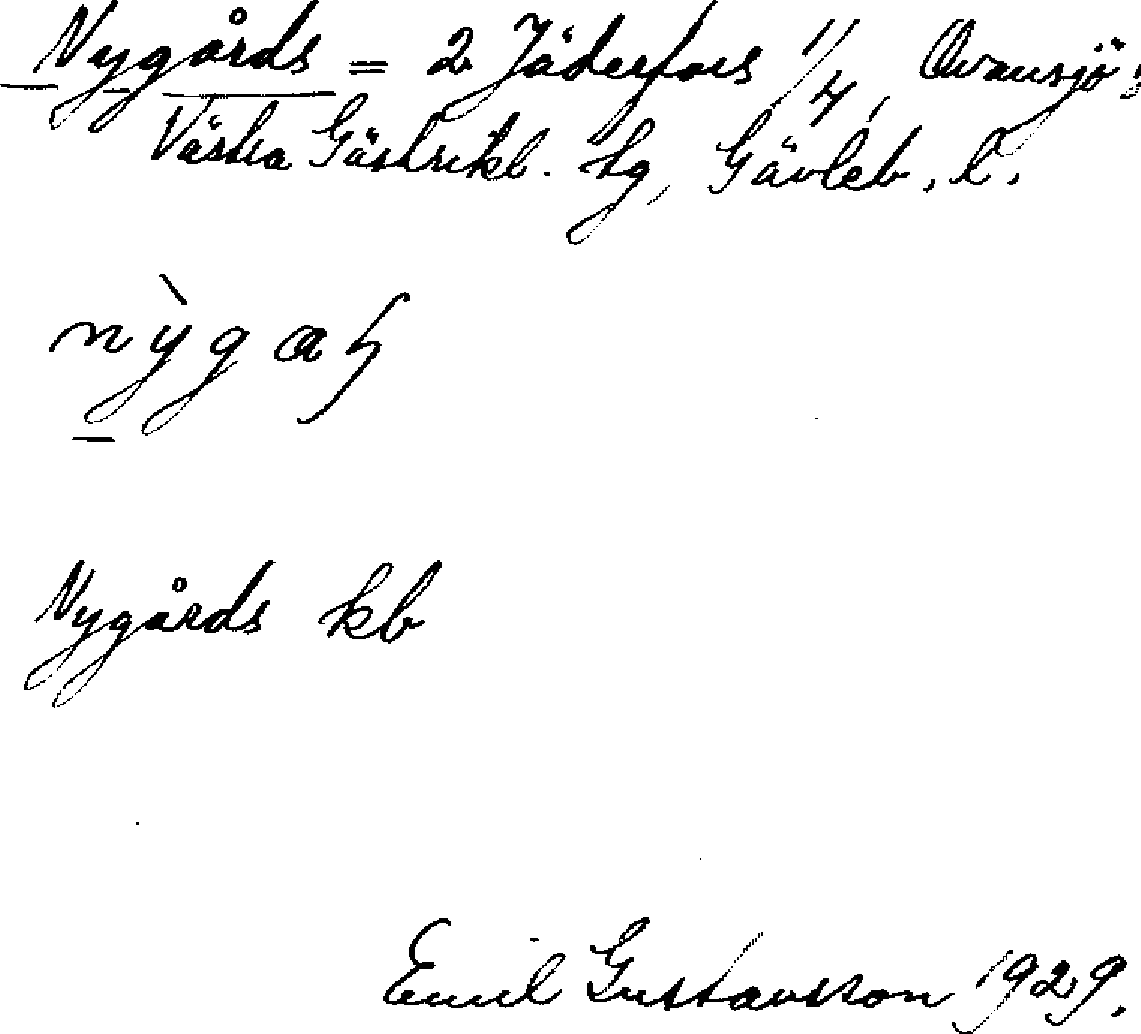 Nygårds = 2 Jäderfors 1/4, Ovansjö s
Västra Gästrikl. tg, Gävleb. l.
nỳgaʂ
Nygårds kb
Emil Gustavsson 1929.